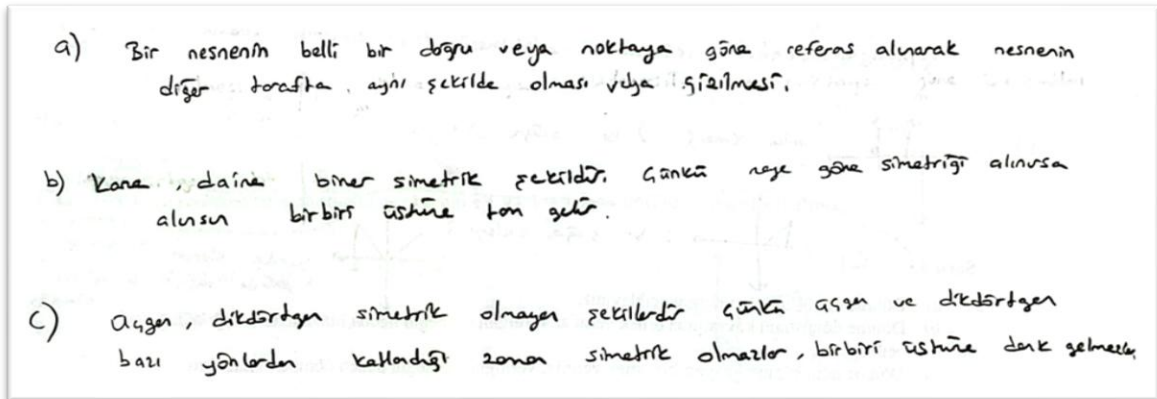 a) Bir nesnenin belli bir doğru veya noktaya göre referas alınarak nesnenin
diğer tarafta. aynı şekilde olması veya çizilmesi.
b) Kare, daire birer simetrik şekildir. Çünkü neye göre simetriği alınırsa
alınsın birbiri üstüne tam gelir.
c) Üçgen, dikdörtgen simetrik olmayan şekillerdir çünkü üçgen ve dikdörtgen
bazı yönlerden katlandığı zaman simetrik olmazlar, birbiri üstüne denk gelmezler